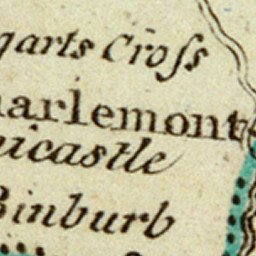 garts Croſs
harlemont
nicastle
Binburb